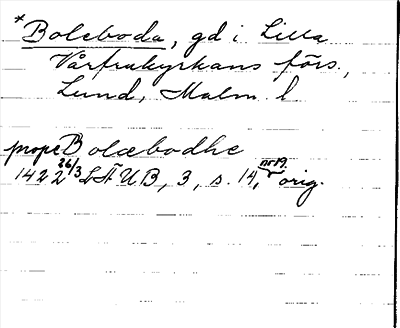 *Boleboda, gd i Lilla
Vårfrukyrkans förs.,
Lund, Malm. l
prope Bolæbodhe
1422 26/3 LÄUB, 3, s. 14, nr 19. orig.